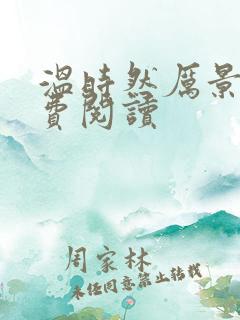 温時然厲景
費閱讀
周家林
未经同意禁止转载